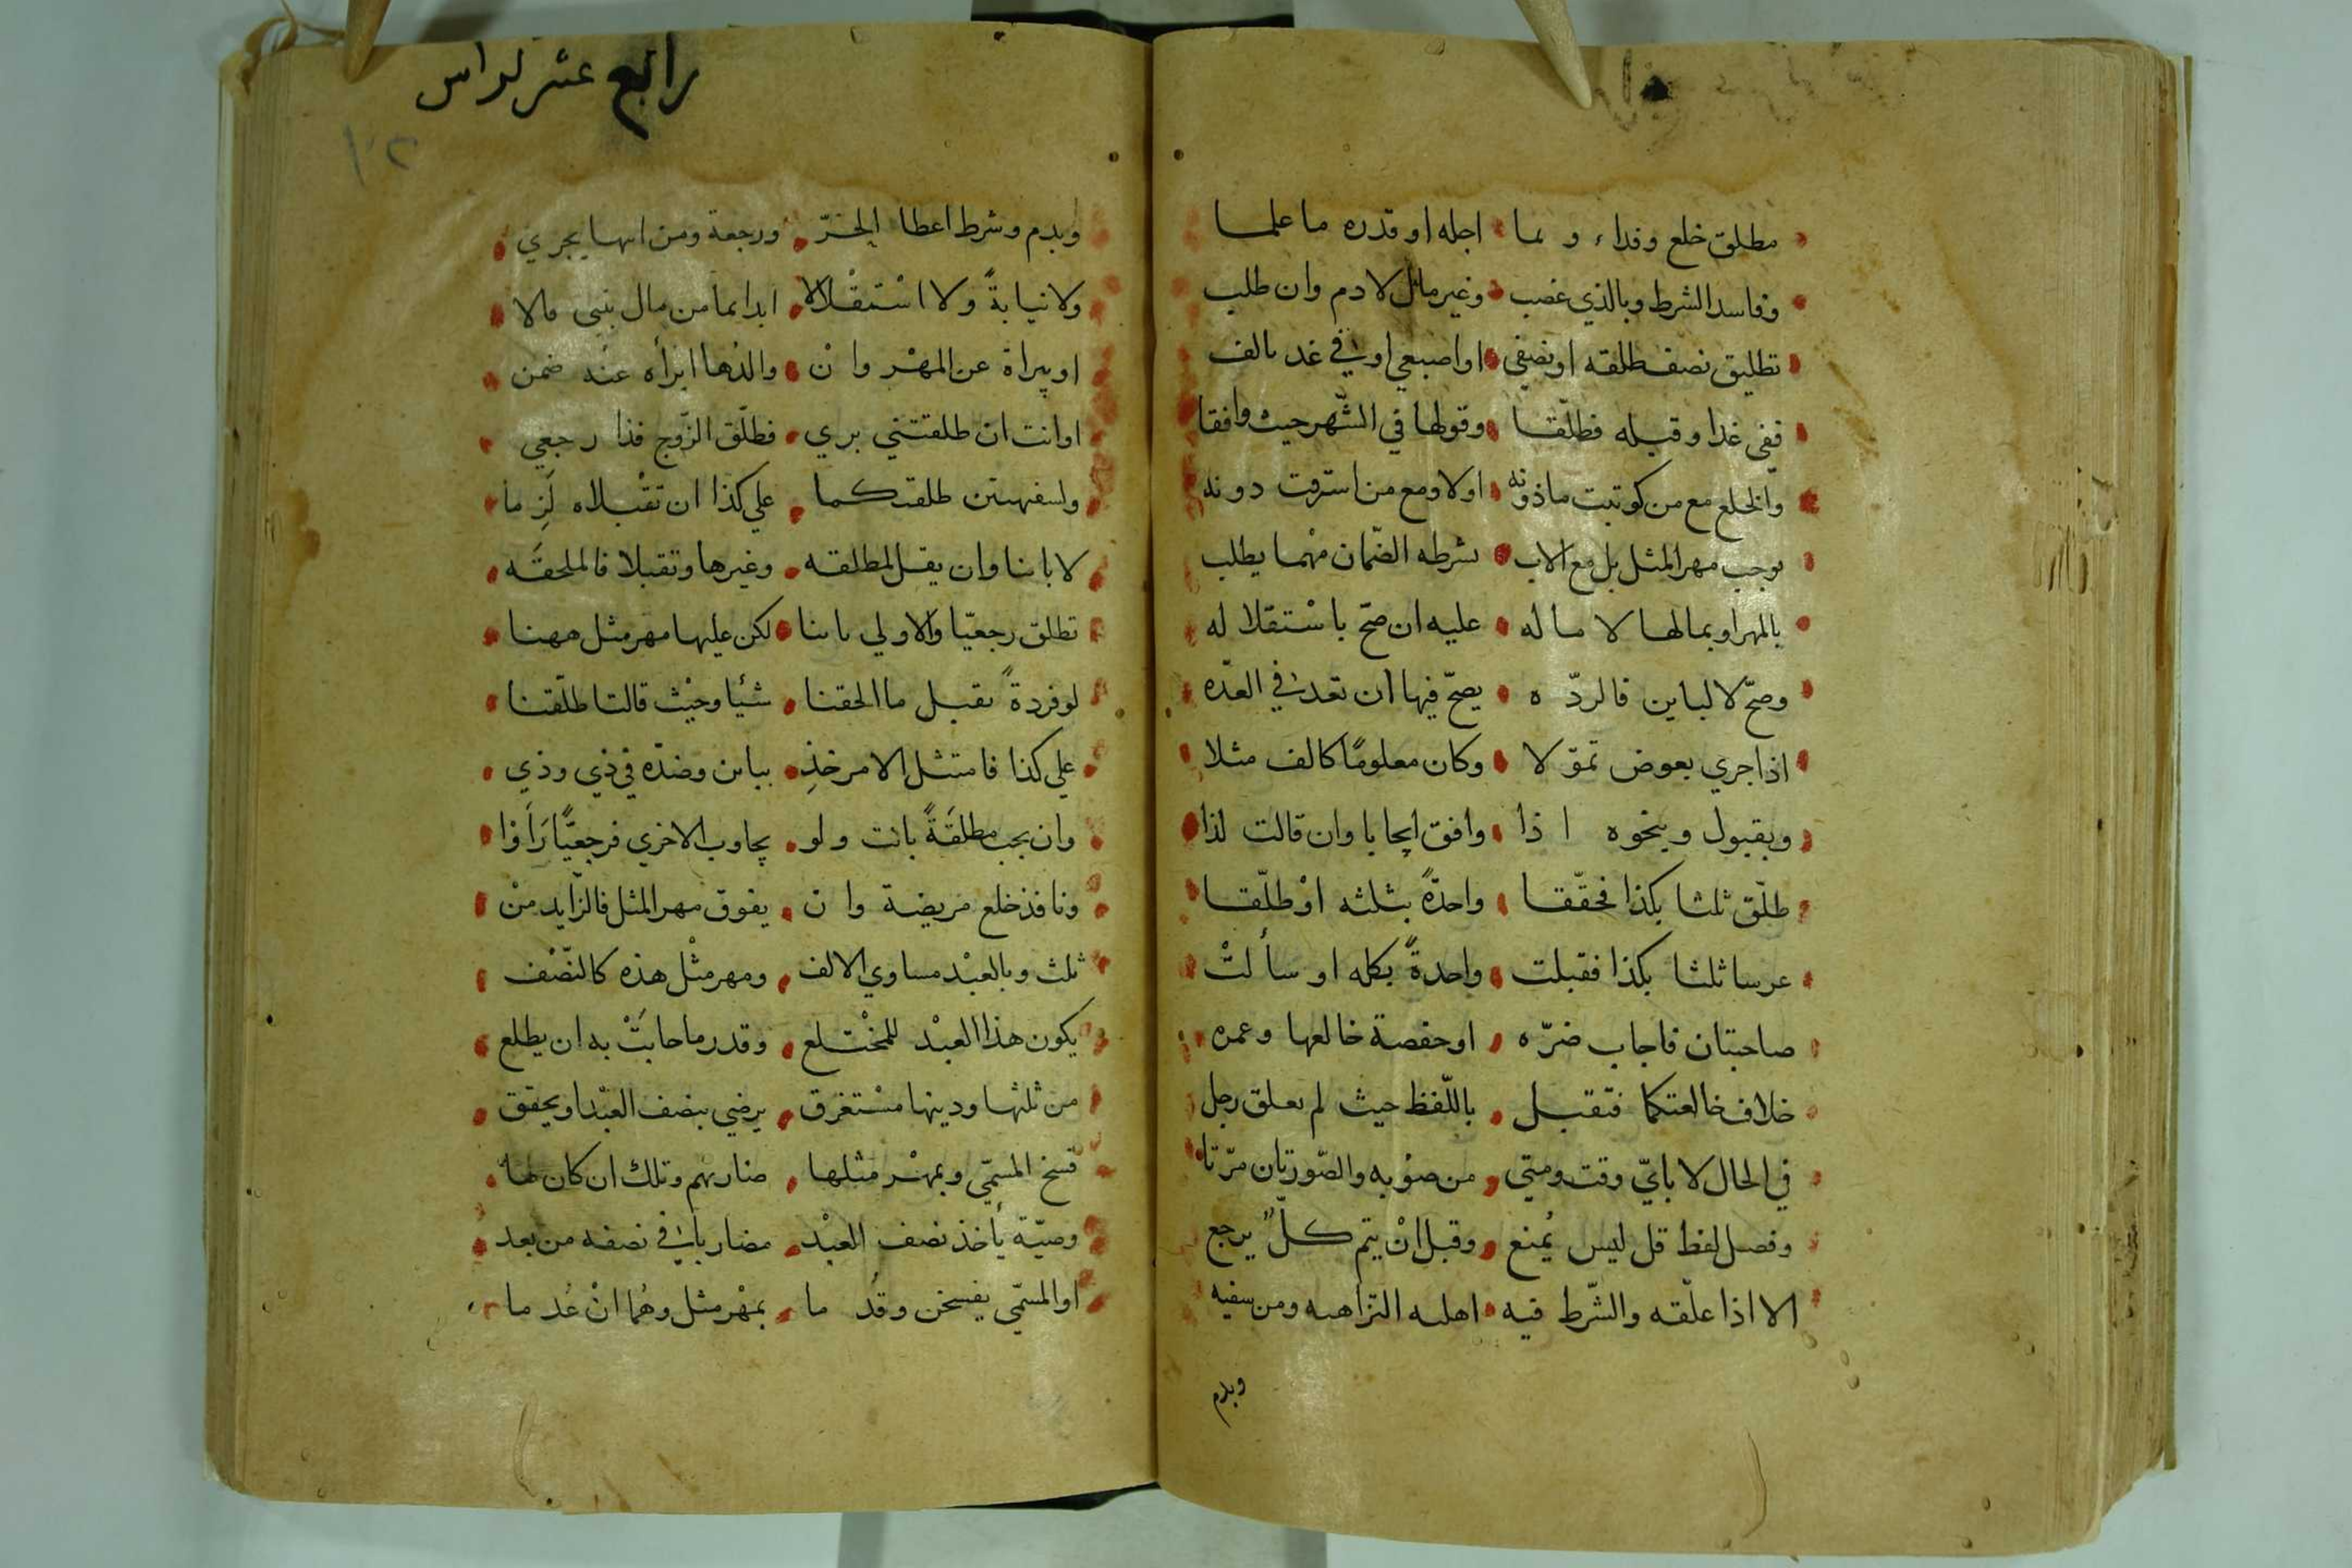 مطلق خلع وفداء و بما اجله او قدره ما علما
وفاسد الشرط وبالذي غصب وغير مال لا دم وان طلب
تطليق نصف طلقه او نصفي او اصبعي او في غد بالف
ففي غدا وقبله فطلّقا وقولها في الشّهر حيث وافقا
والخلع مع من كوتبت ماذونه اولا ومع من استرقت دونه
يوجب مهر المثل بل مع الاب بشرطه الضّمان مهما يطلب
بالمهر او بمالها لا ماله عليه ان صحّ باسْتقلاله
وصحّ لا لباين فالردّه يصحّ فيها ان تعد في العدّه
اذا جري بعوض تموّلا وكان معلومًا كالف مثلا
وبقبول وبنحوه اذا وافق ايجابا وان قالت لذا
طلّق ثلثا بكذا فحقّقا واحدةً بثلثه اوْ طلّقا
عرسا ثلثا بكذا فقبلت واحدةً بكله او سألتْ
صاحبتان فاجاب ضرّه او حفصة خالعها وعمره
خلاف خالعتكما فتقبل باللّفظ حيث لم يعلق رجل
في الحال لا بايّ وقت ومتي من صوْبه والصّورتان مرّتا
وفصل لفظ قل ليس يُمنع وقبل انْ يتم كلٌّ يرجع
الا اذا علّقه والشّرط فيه اهليه التزامه ومن سفيه
وبدم
رابع عشر لراس
١٠٢
وبدم وشرط اعطا الخمرّ ورجعة ومن ابها يجري
ولا نيابةً ولا اسْتقْلالا ابدا بما من مال بنتي مالا
او ببراة عن المهْر وانْ والدُها ابرأه عنْه ضمن
او انت ان طلقتني بري فطلّق الزّوج فذا رجعي
ولسفيهتين طلقتكما علي كذا ان تقْبلاه لَزِما
لا باينا وان يقل لمطلقه وغيرها وتقبلا فالملحقَه
تطلق رجعيّا والاولي باينا لكن عليها مهر مثل ههنا
لو فردةً تقبل ما الحقنا شيْئا وحيْث قالتا طلّقتنا
علي كذا فامتثل الامر خذِ بباين وضدّه في ذي وذي
وان يجب مطلقَةً بانت ولو يجاوب الاخري فرجعيًّا رَاَوْا
ونافذ خلع مريضة وان يفوق مهر المثل فالزّايد منْ
ثلث وبالعبْد مساوي الالف ومهر مثْل هذه كالنّصْف
يكون هذا العبْد للمخْتلع وقدر ما حابَتْ به ان يطلع
من ثلثها ودينها مسْتغرق يرضي بنصف العبْد او يحقق
فسخ المسمّي وبمهْر مثلها ضاربهم وتلك ان كان لها
وصيّة يأخذ نصف العبْد مضاربا في نصفه من بعد
او المسمّي يفسخن وقُدما بمهْر مثل وهُما انْ عُدما